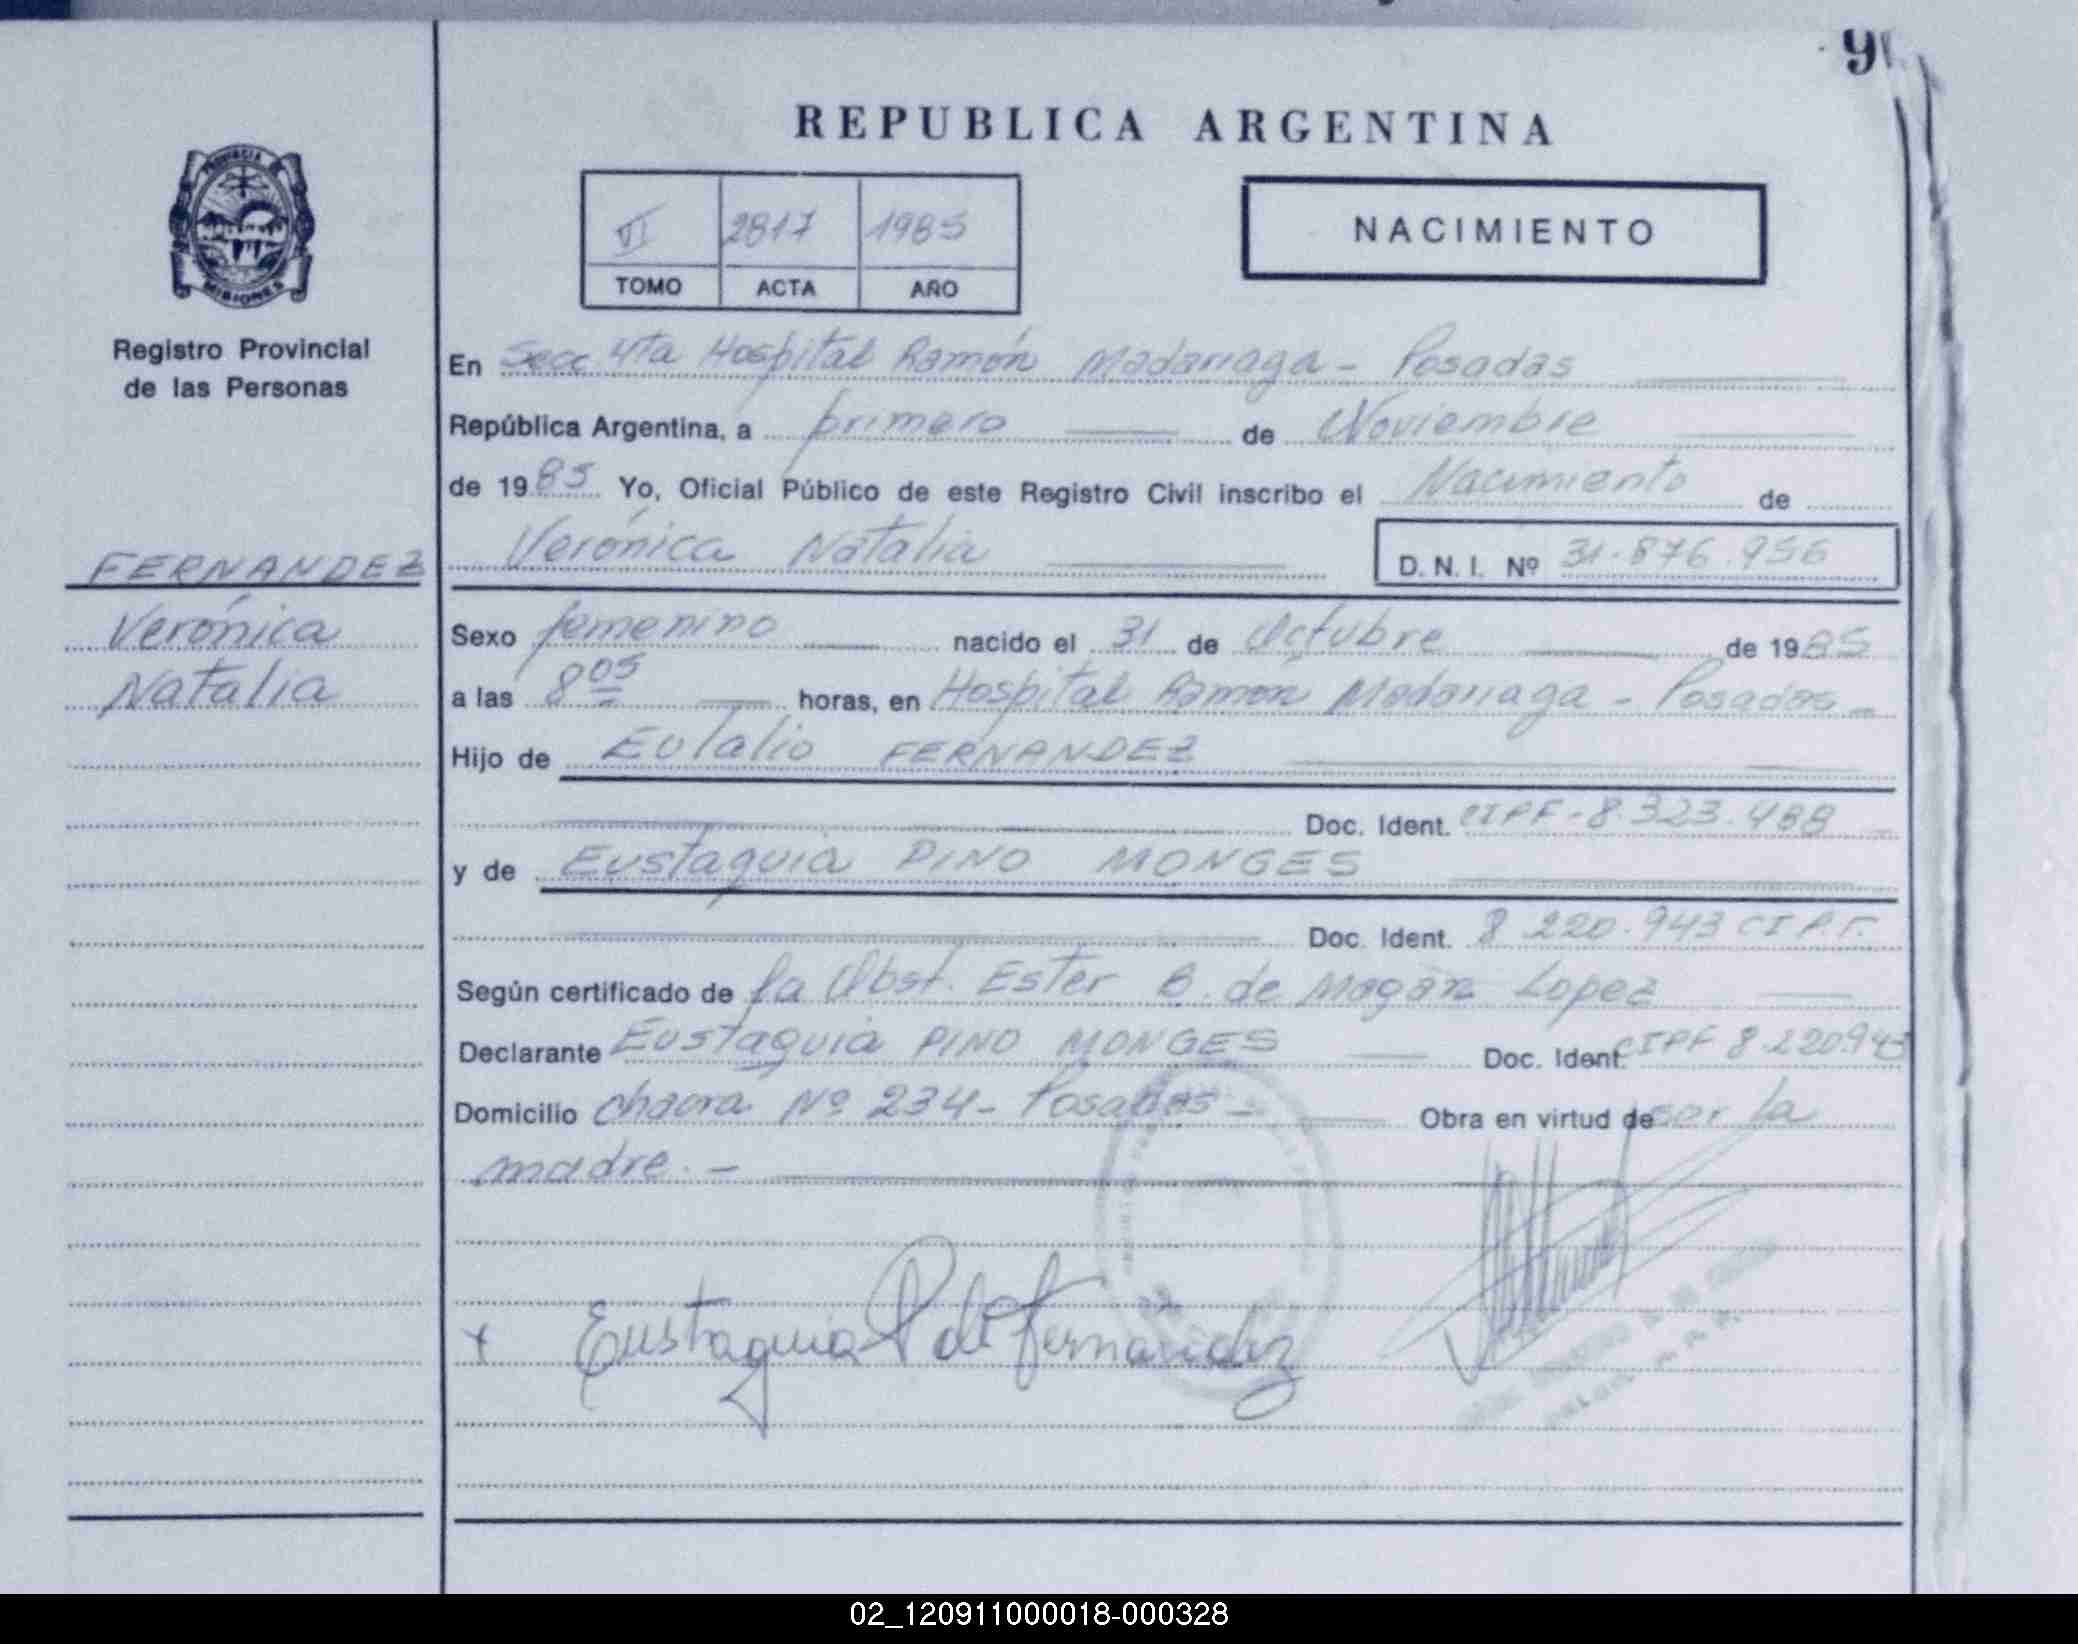 REPUBLICA ARGENTINA
VI 2817 1985
TOMO ACTA AÑO
NACIMIENTO
PROVINCIA
MISIONES
Registro Provincial
de las Personas
FERNANDEZ
Verónica
Natalia
En Secc 4ta Hospital Ramón Madariaga - Posadas
República Argentina, a primero de Noviembre
de 1985 Yo, Oficial Público de este Registro Civil inscribo el Nacimiento de
Verónica Natalia D. N. I. Nº 31.876.956
Sexo femenino nacido el 31 de Octubre de 1985
a las 8 05 horas, en Hospital Ramón Madariaga - Posadas -
Hijo de Eulalio FERNANDEZ
Doc. Ident. CIPF - 8.323.488
y de Eustaquia PINO MONGES
Doc. Ident. 8 220.943 CIPF.
Según certificado de la Obst. Ester B. de Lopez
Declarante Eustaquia PINO MONGES Doc. Ident. CIPF 8.220.943
Domicilio chacra Nº 234 - Posadas - Obra en virtud de ser la
madre. -
x Eustaquia P de Fernandez
02_120911000018-000328